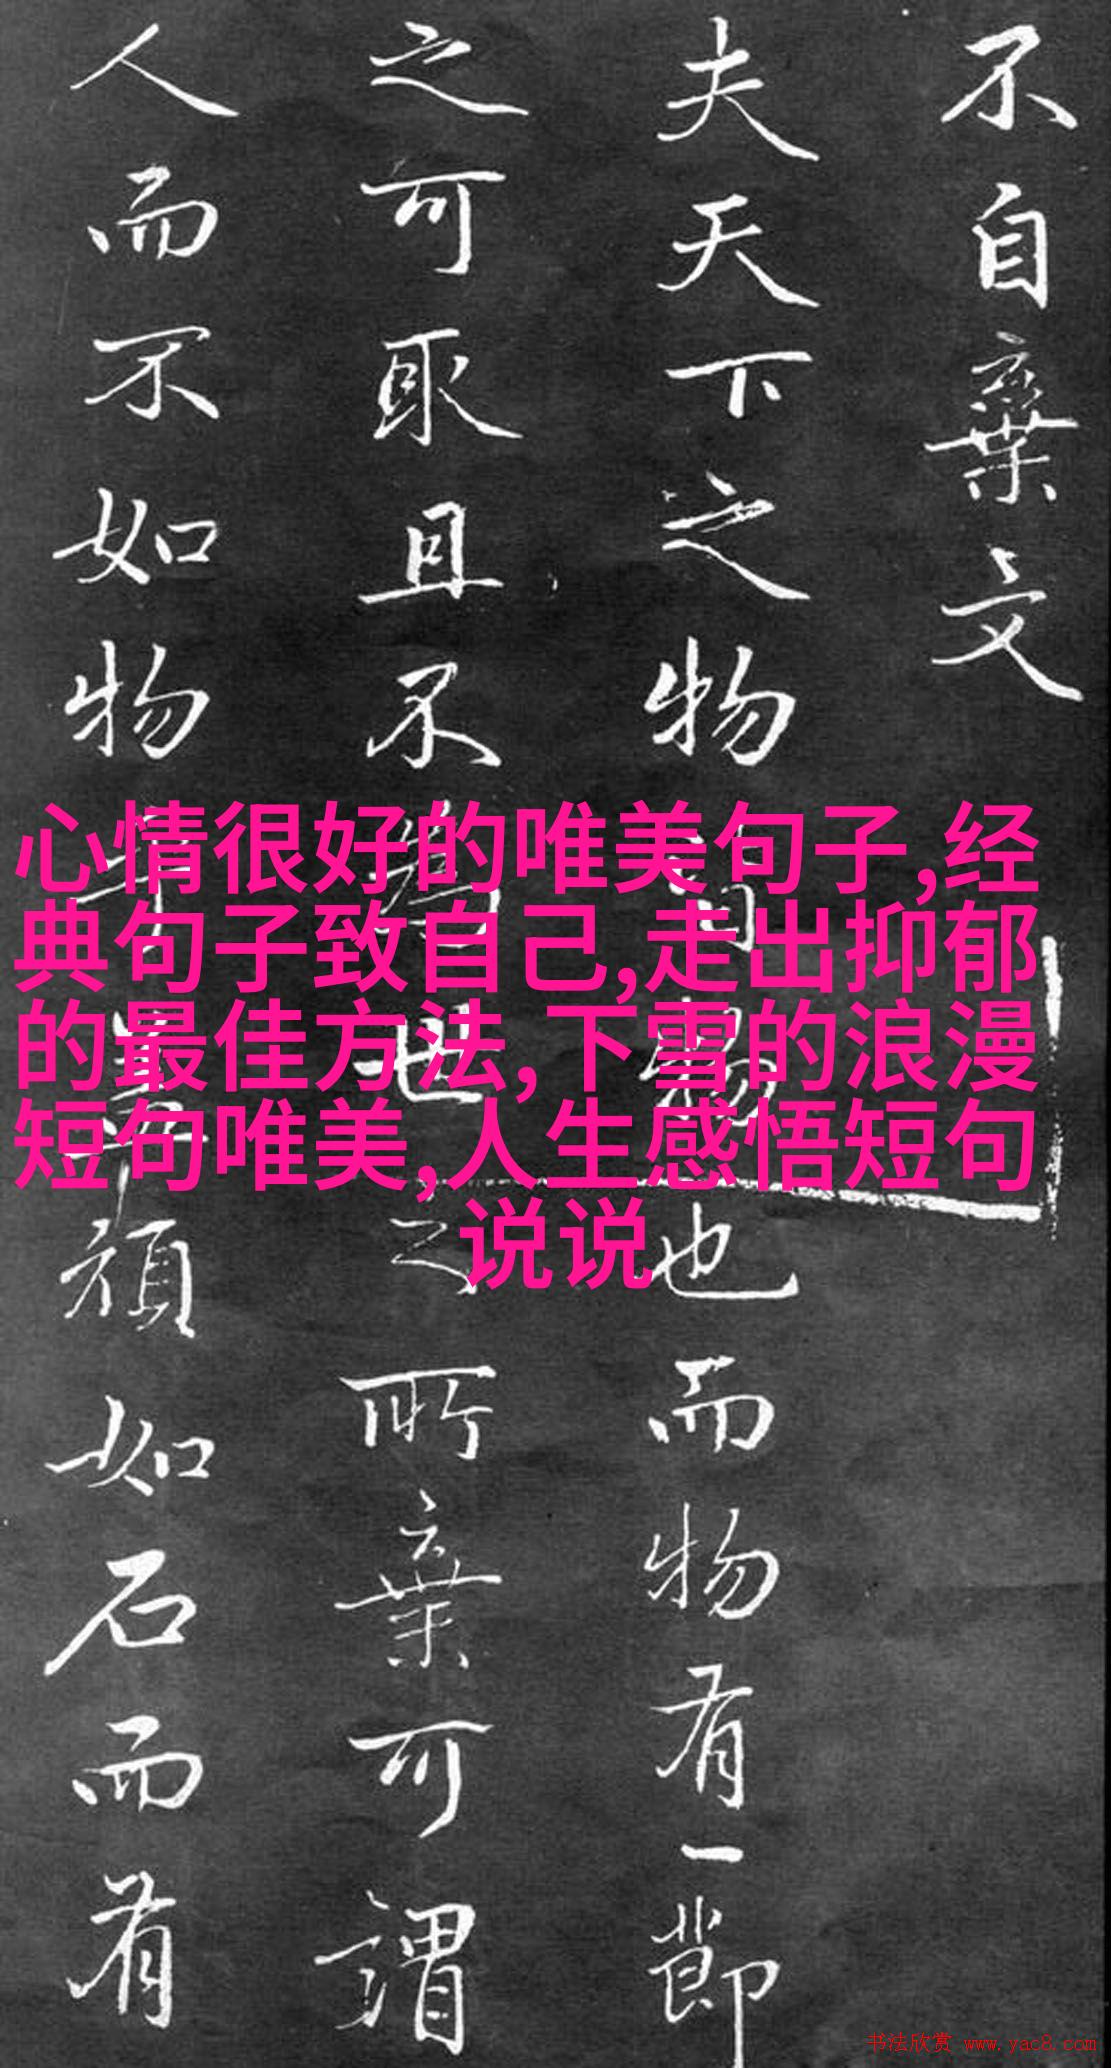 不自棄文
夫天下之物皆物也而物有一節
之可取且不為世之所棄可謂
人而不如物乎蓋頑如石而有
心情很好的唯美句子,经
典句子致自己,走出抑郁
的最佳方法,下雪的浪漫
短句唯美,人生感悟短句
说说
书法欣赏 www.yac8.com